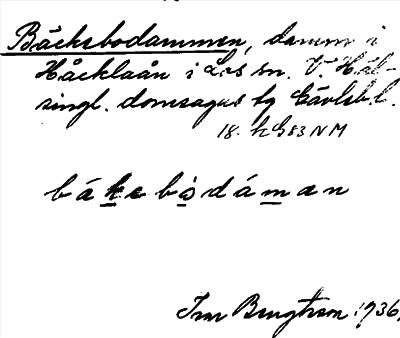 Bäcksbodammen, damm i
Håcklaån i Los sn. V. Häl-
singl. domsagas fg Gävleb. l.
18. h G83NM
báksbòdámɑn
Ivar Bengtsson 1936.